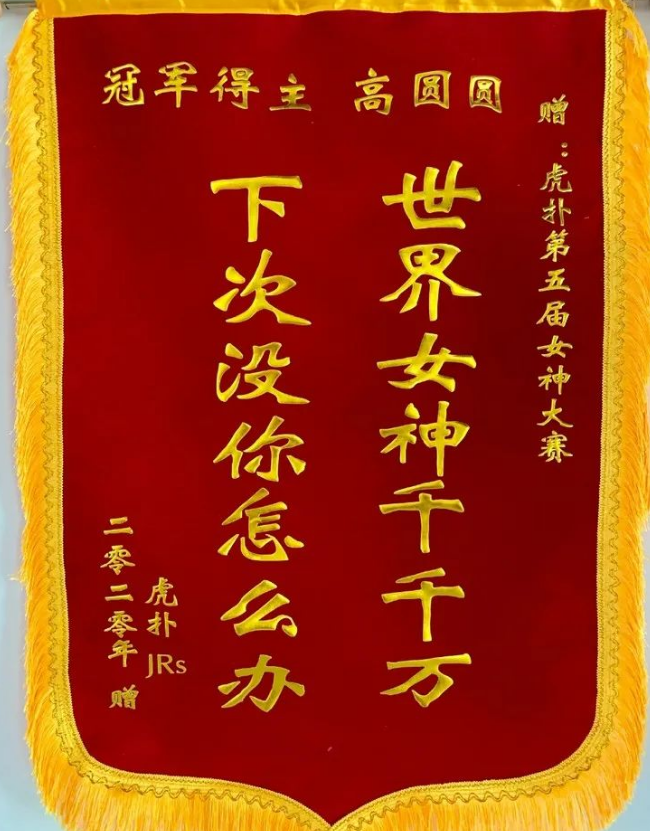 赠：虎扑第五届女神大赛
冠军得主 高圆圆
世界女神千千万
下次没你怎么办
虎扑JRs
二零二零年 赠